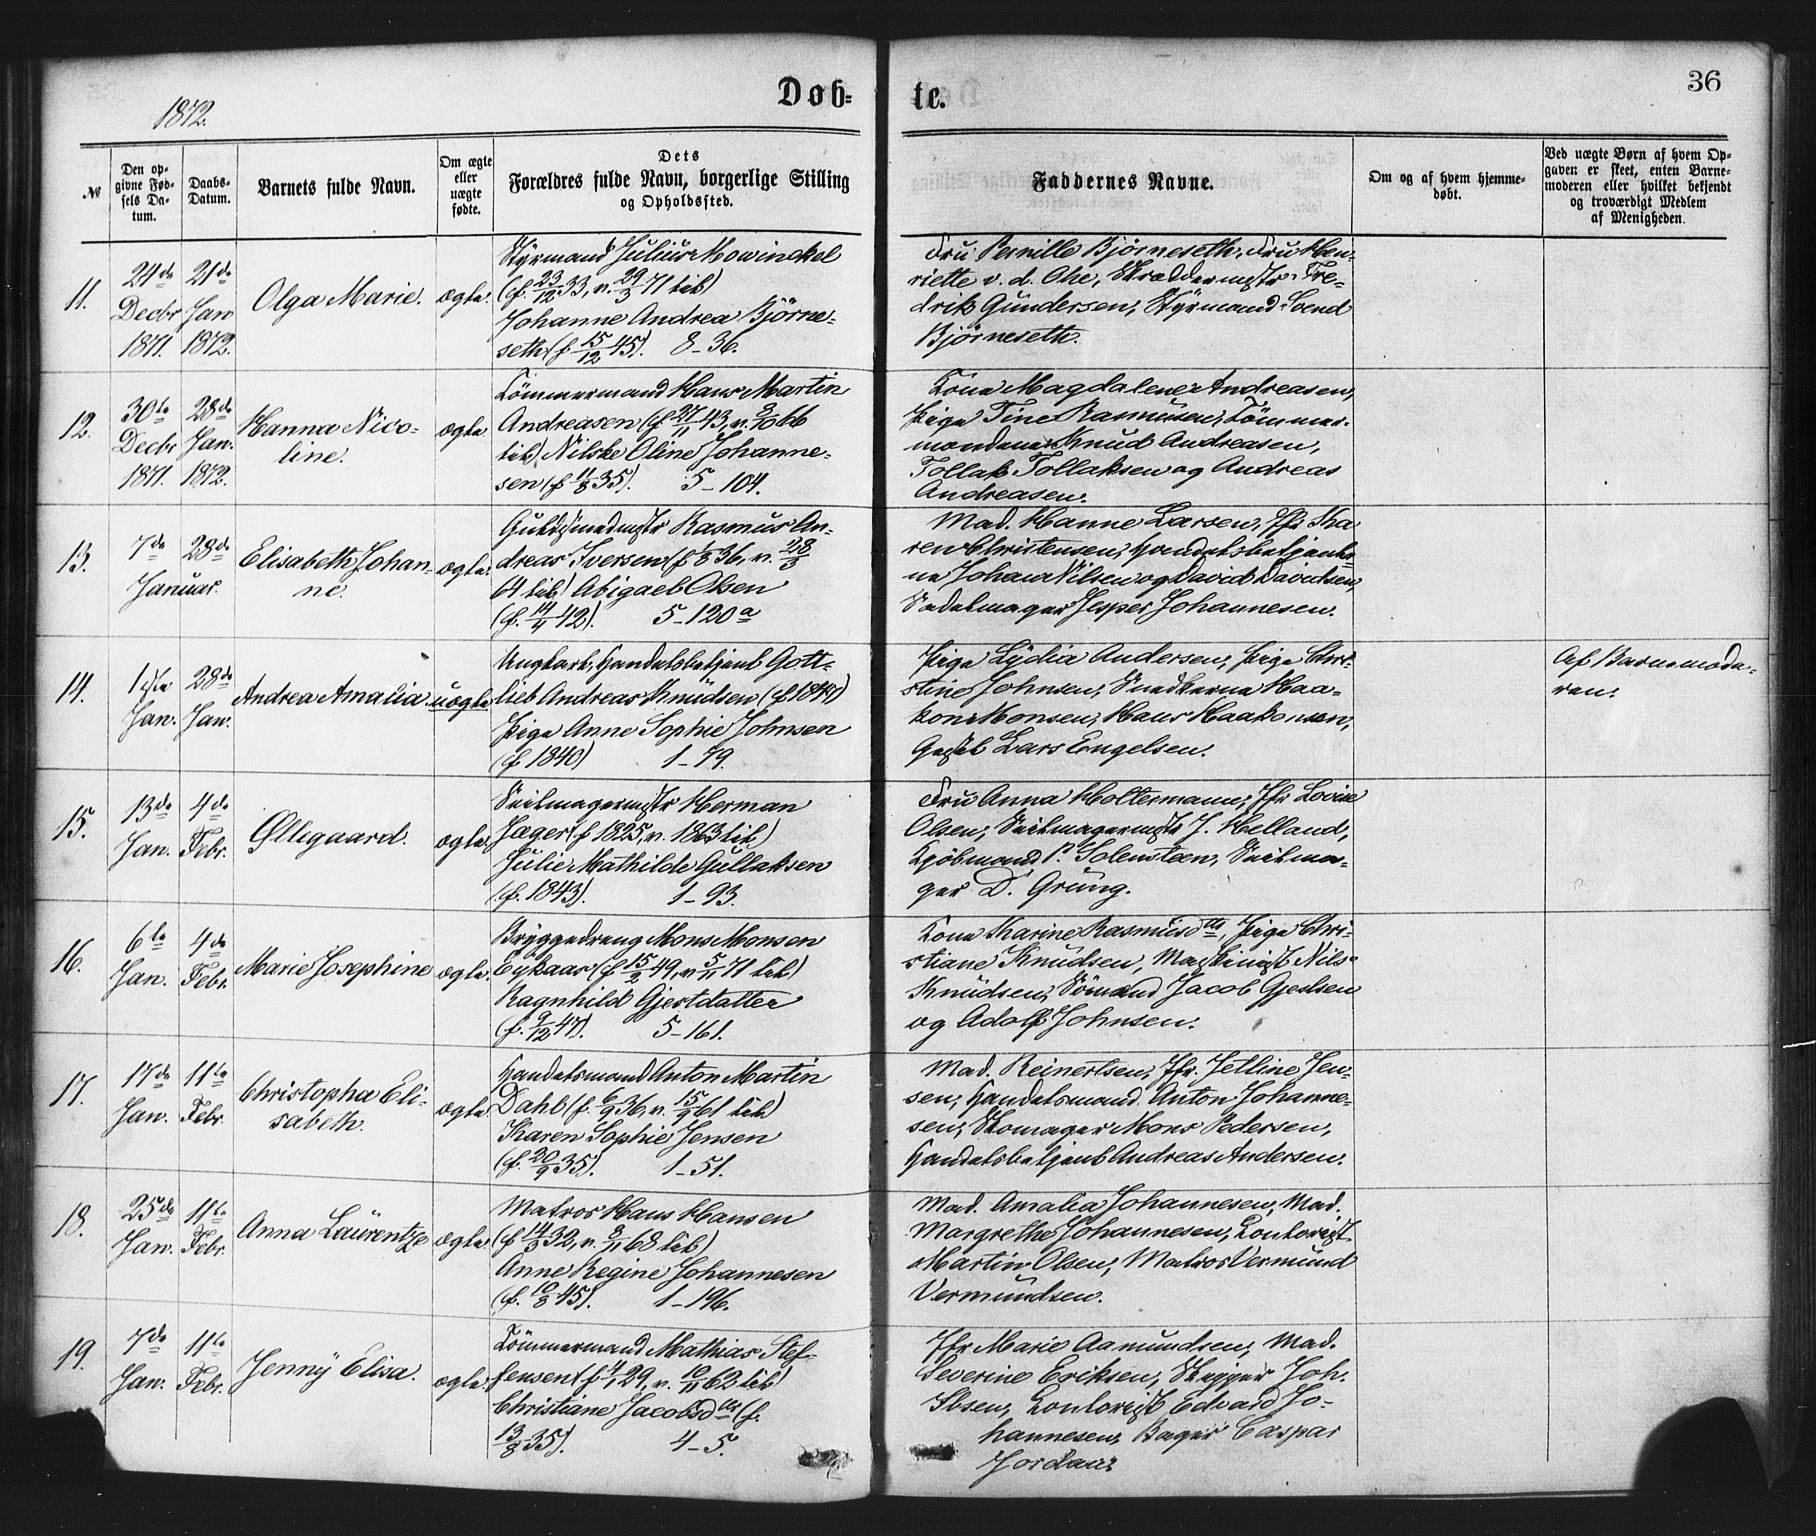 1872.
Døb-
te.
36
№
Den op-
givne Fød-
sels Da-
tum.
Daabs-
Datum.
Barnets fulde Navn.
Om ægte
eller
uægte
fødte.
Dets
Forældres fulde Navn, borgerlige Stilling
og Opholdssted.
Faddernes Navne.
Om og af hvem hjemme-
døbt.
Ved uægte Børn af hvem Op-
gaven er skeet, enten Barne-
moderen eller hvilket bekjendt
og troværdigt Medlem
af Menigheden.
11.
24de
Decbr
1871.
21de
Jan
1872.
Olga Marie.
ægte.
Styrmand Julius Mowinckel
(f. 23/12 33, v. 29/3 71 tib)
Johanne Andrea Bjørne-
seth (f. 15/12 45). 8-36.
Fru Pernille Bjørneseth, Fru Hen-
riette v. d. Ohe, Skræddermstr Fre-
drik Gundersen, Styrmand Svend
Bjørneseth.
12.
30te
Decbr
1871.
28de
Jan.
1872.
Hanna Nico-
line.
ægte
Tømmermand Hans Martin
Andreasen (f 27/11 43, v. 8/10 66
tib) Nilske Oline Johanne-
sen (f 11/8 35). 5-104.
Kone Magdalene Andreasen,
Pige Tine Rasmusen, Tømmer-
mændene Knud Andreasen,
Tollak Tollaksen og Andreas
Andreasen.
13.
7de
Januar.
28de
Jan.
Elisabeth Johan-
ne.
ægte.
Guldsmedmstr Rasmus An-
dreas Iversen (f 1/8 36, v. 28/3
64 tib) Abigael Olsen
(f. 14/4 42). 5-120a
Mad. Hanne Larsen, Jfr Ka-
ren Christensen, Handelsbetjente-
ne Johan Nilsen og David Davidsen,
Sadelmager Jesper Johannesen.
14.
1ste
Jan.
28de
Jan.
Andrea Amalia.
uægte
Ungkarl, Handelsbetjent Gott-
lieb Andreas Knudsen (f. 1847)
Pige Anne Sophie Johnsen
(f 1840) 1-79.
Pige Lydia Andersen, Pige Chri-
stine Johnsen, Snedkerne Haa-
kon Monsen, Hans Haakonsen,
Gesel Lars Engelsen.
Af Barnemode-
ren.
15.
13de
Jan.
4de
Febr.
Øllegaard.
ægte.
Seilmagermstr Herman
Jager (f 1825, v. 1863 tib)
Julie Mathilde Gullaksen
(f. 1843). 1-93.
Fru Anna Holtermann, Jfr Lovise
Olsen, Seilmagermstr J. Helland,
Kjøbmand P. Solensteen, Seilma-
ger D. Grung.
16.
6te
Jan.
4de
Febr.
Marie Josephine
ægte.
Bryggedreng Mons Monsen
Eykaas (f 15/2 49, v 5/11 71 tib)
Ragnhild Gjestdatter
(f. 9/12 47). 5-161.
Kone Karine Rasmusdtr, Pige Chri-
stiane Knudsen, Maskinist Nils
Knudsen, Sømand Jacob Gjestsen
og Adolf Johnsen.
17.
17de
Jan.
11te
Febr.
Christopha Eli-
sabeth.
ægte.
Handelsmand Anton Martin
Dahl (f. 6/9 36, v. 15/9 61 tib)
Karen Sophie Jensen
(f. 20/9 35). 1-51.
Mad. Reinertsen, Jfr. Jetline Jen-
sen, Handelsmand Anton Johanne-
sen, Skomager Mons Pedersen,
Handelsbetjent Andreas Andersen.
18.
25de
Jan.
11te
Febr.
Anna Laurentze
ægte.
Matros Hans Hansen
(f 14/3 32, v. 8/11 68 tib)
Anne Regine Johannesen
(f. 10/8 45). 1-196.
Mad. Amalia Johannesen, Mad.
Margrethe Johannesen, Contorist
Martin Olsen, Matros Vermund
Vermundsen.
19.
7de
Jan.
11te
Febr.
Jenny Elisa.
ægte.
Tømmermand Mathias Stef-
fensen (f 4/1 29, v. 10/11 62 tib)
Christiane Jacobsdtr (f.
13/8 35). 4-5.
Jfr Marie Aamundsen, Mad.
Severine Eriksen, Skipper Joh.
Ibsen, Contorist Edvard Jo-
hannesen, Bager Caspar
Jordan.